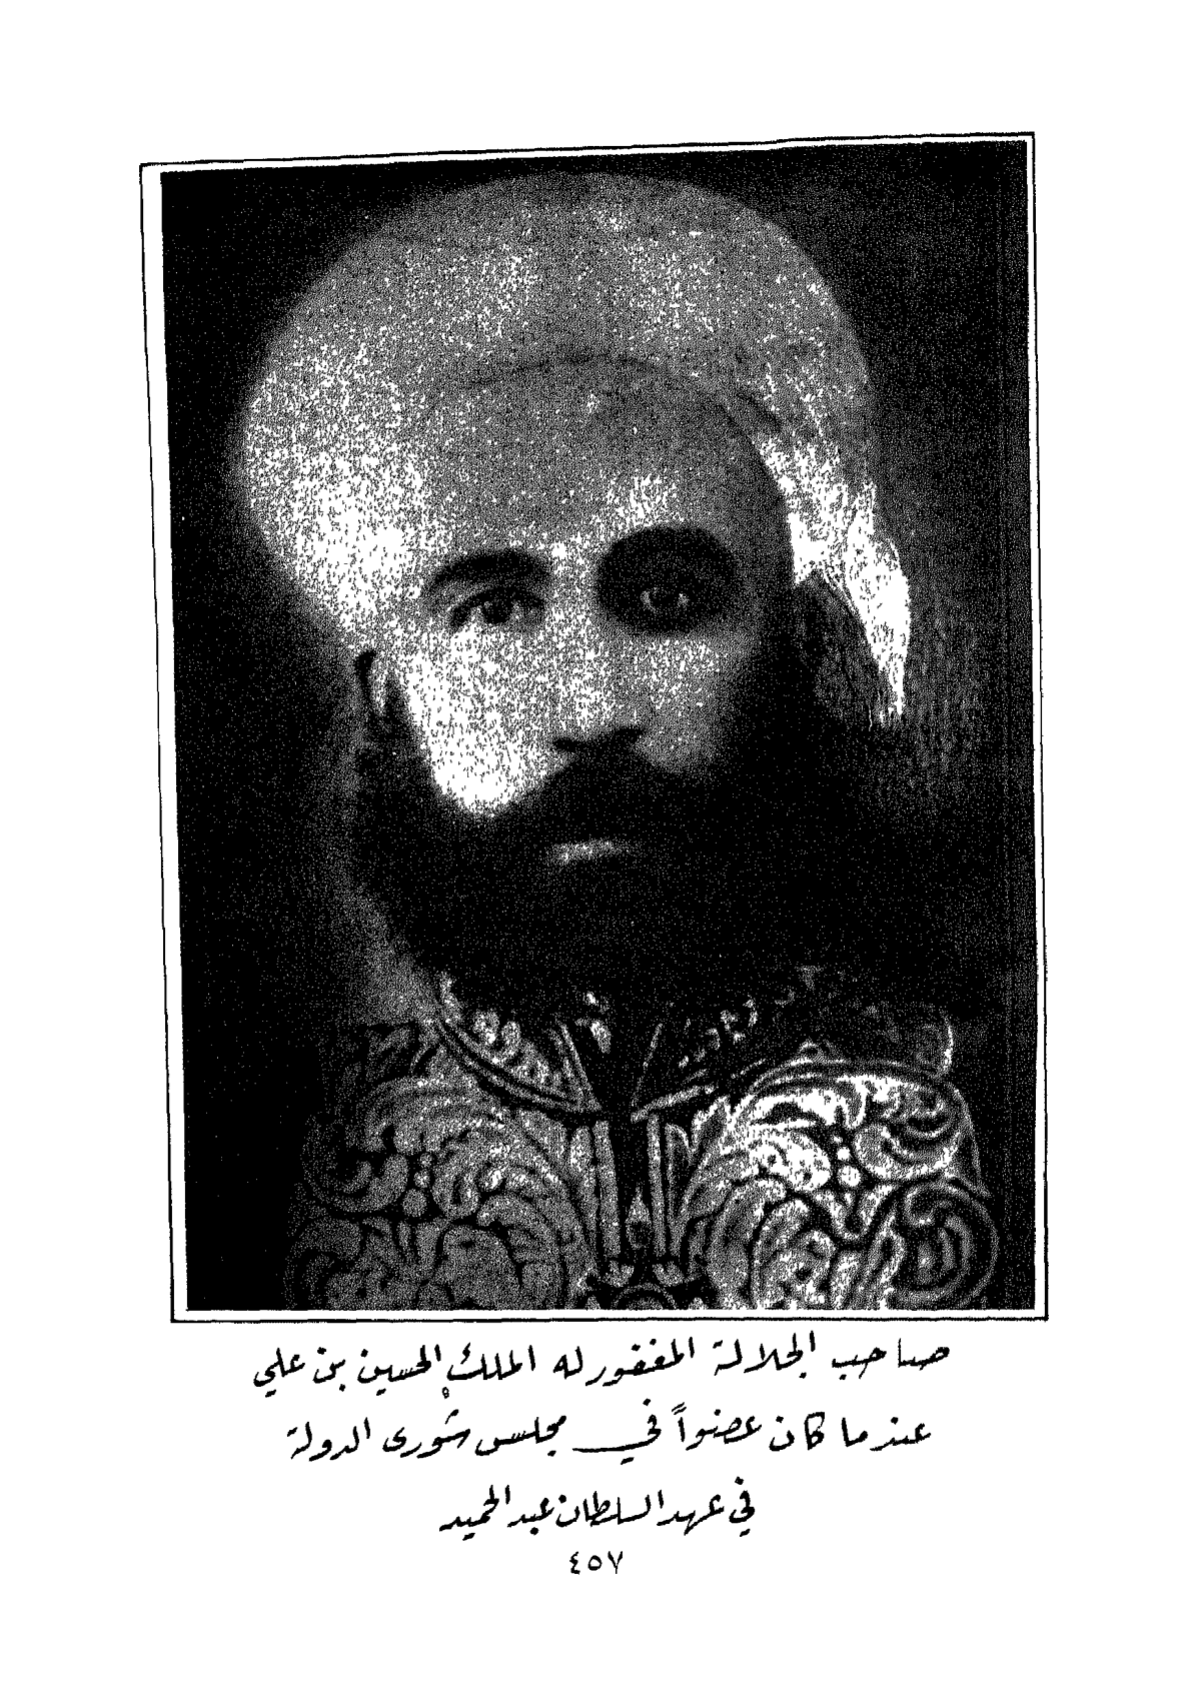 صاحب الجلالة المغفور له الملك الحسين بن علي
عندما كان عضواً في مجلس شورى الدولة
في عهد السلطان عبد الحميد
٤٥٧